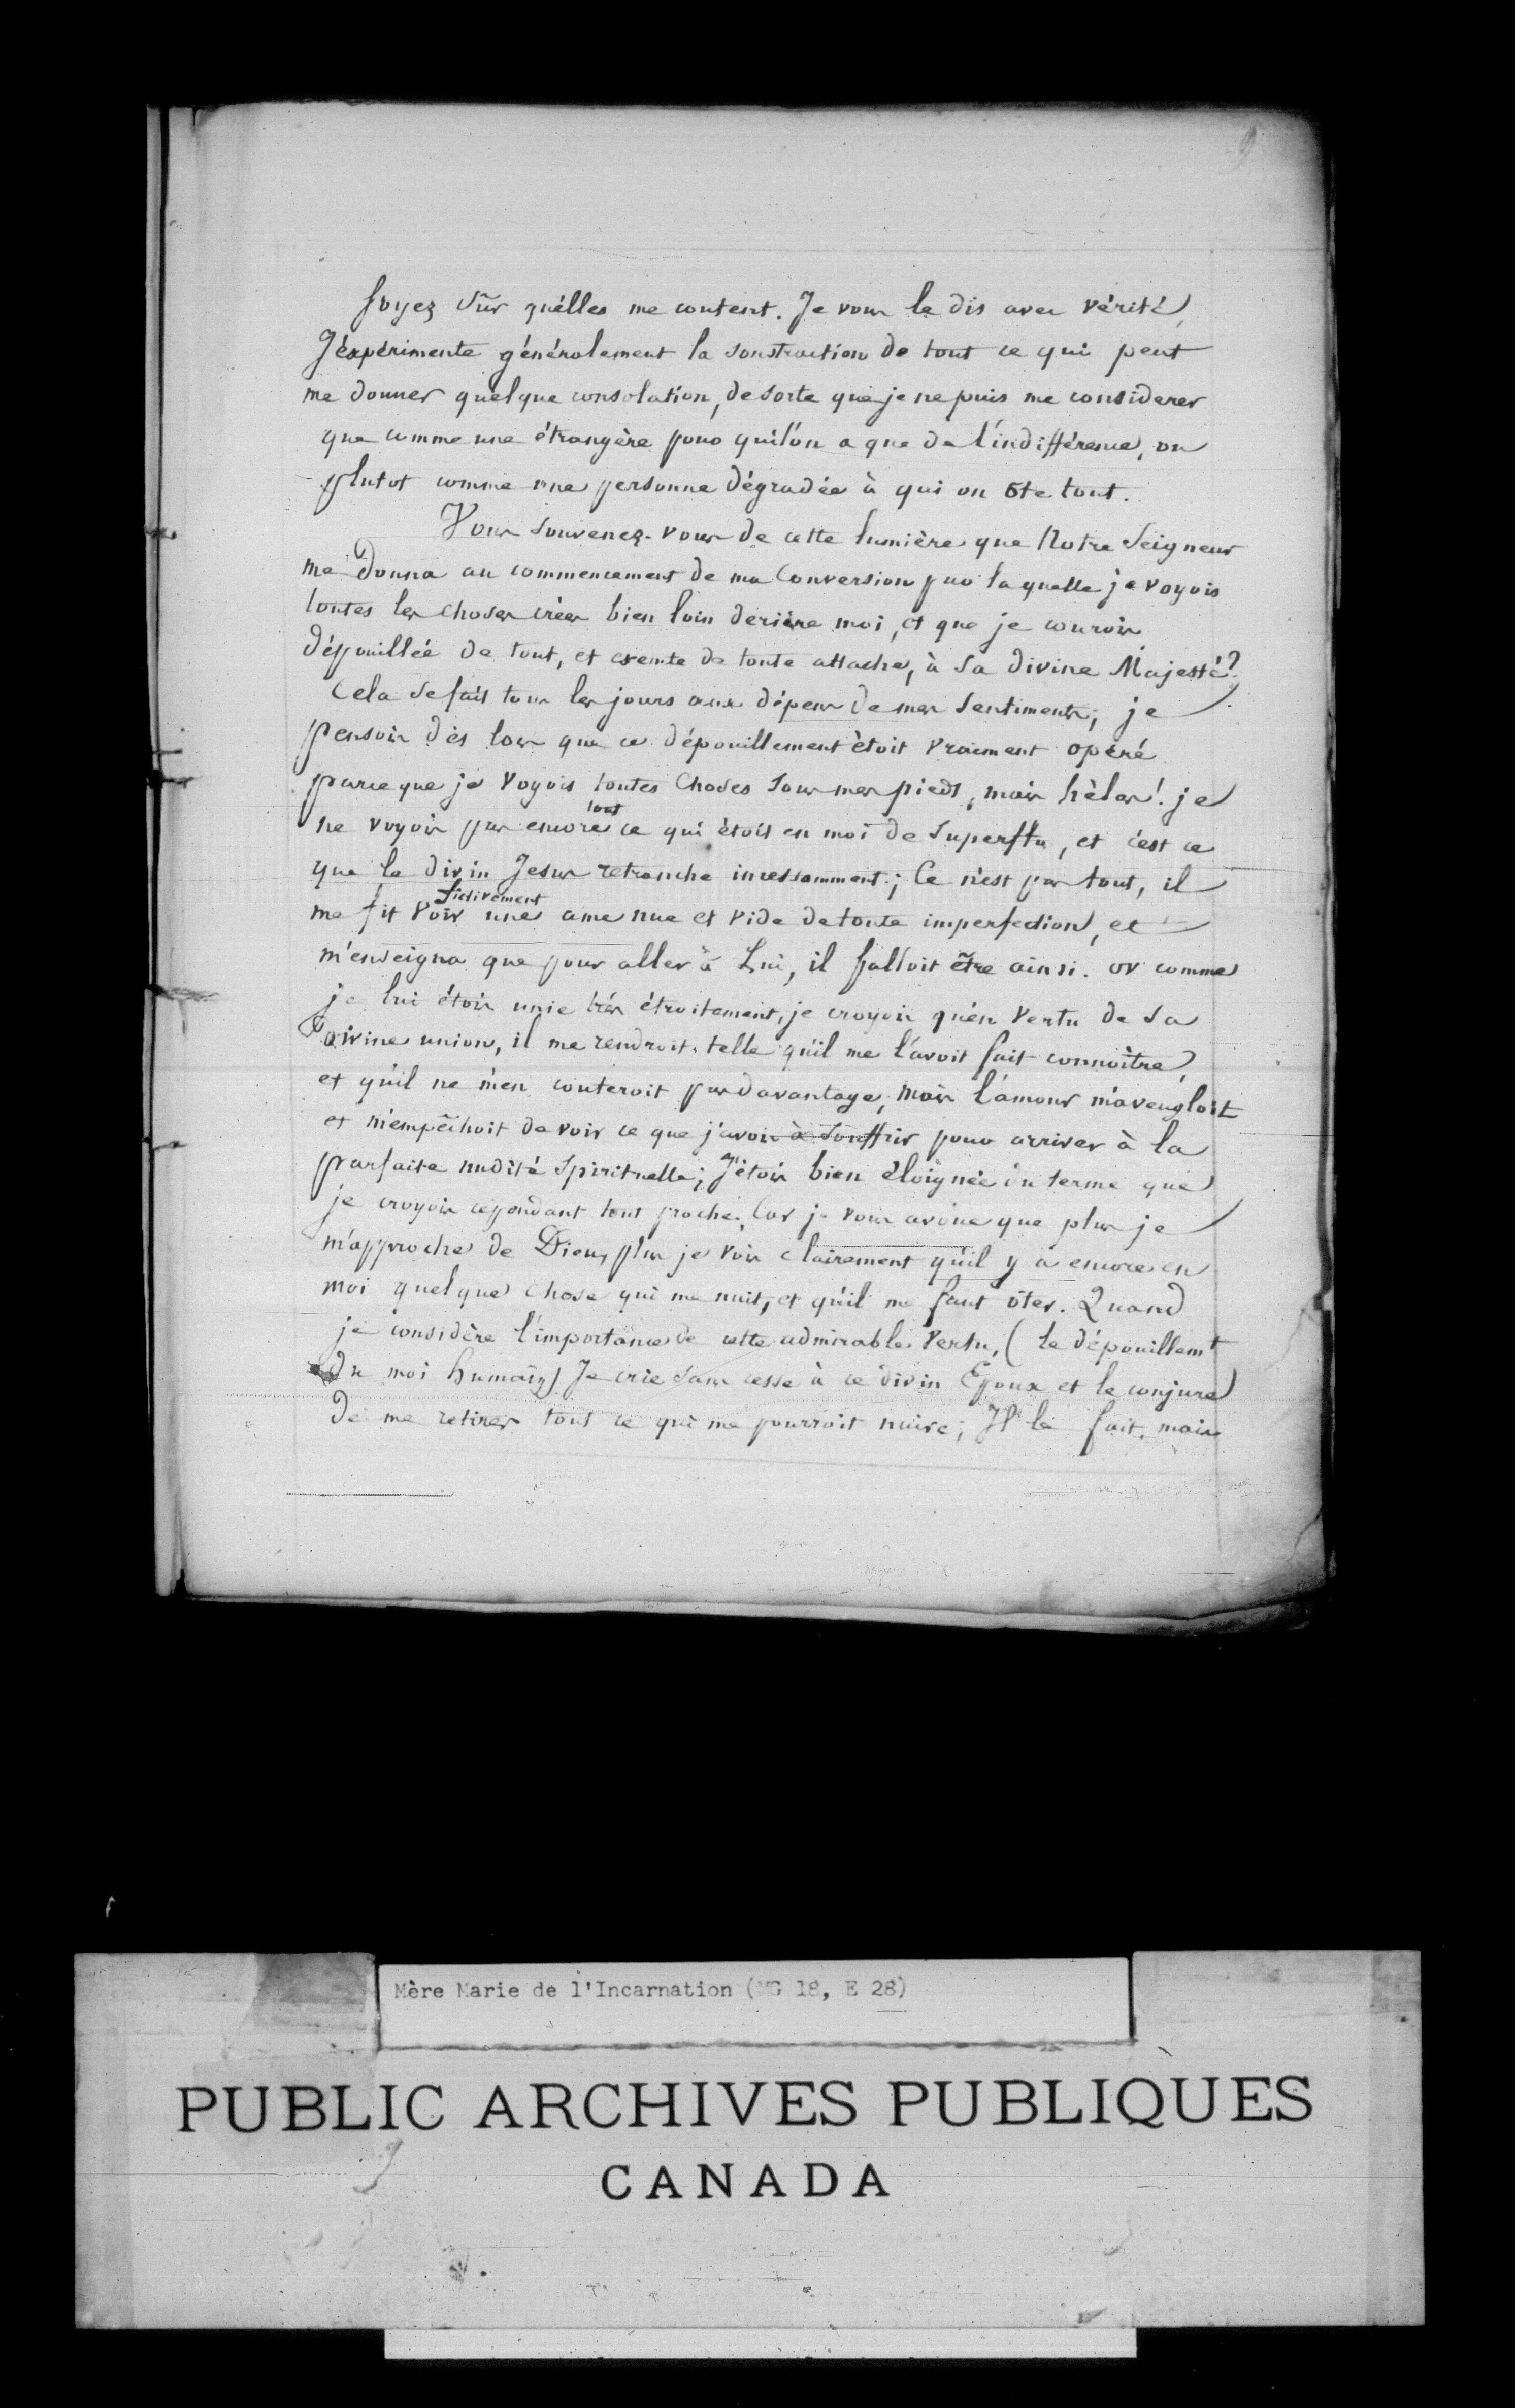 9
soyez sûr qu'elles me coutent. Je vous le dis avec vérité,
J'éxpérimente généralement la soustraction de tout ce qui peut
me donner quelque consolation, desorte que je ne puis me considerer
que comme une étrangère pour qui l'ón a que de l'indifférence, ou
plutot comme une personne dégradée à qui on ôte tout.
Vous souvenez-vous de cette lumière que Notre Seigneur
me donna au commencement de ma Conversion par laquelle je voyois
toutes les choses créer bien loin derière moi, et que je courois
dépouillée de tout, et exemte de toute attache, à sa divine Majesté?
Cela se fait tous les jours aux dépens de mes sentiments; je
pensois dès lors que ce dépouillement ètoit vraiment opéré
parceque je voyois toutes choses sous mes pieds, mais hèlas! je
ne voyois pas encore tout ce qui étoit en moi de superflu, et c'est ce
que le divin Jesus retranche incessamment; Ce n'est pas tout, il
me fit voir fictivement une ame nue et vide de toute imperfection, et
m'enseigna que pour aller à Lui, il falloit être ainsi. or comme
je lui étois unie très étroitement, je croyois qu'en vertu de sa
divine union, il me rendroit telle qu'il me l'avoit fait connoître,
et qu'il ne m'en couteroit pas davantage; mais l'amour m'aveugloit
et m'empêchoit de voir ce que j'avois à souffrir pour arriver à la
parfaite nudité spirituelle; J'étois bien éloignée du terme que
je croyois cependant tout proche. Car je vous avoue que plus je
m'approche de Dieu, plus je vois clairement qu'il y a encore en
moi quelque chose qui me nuit, et qu'il me faut ôter. Quand
je considère l'importance de cette admirable vertu, (le dépouillemt
du moi humain) Je crie sans cesse à ce divin Epoux et le conjure
de me retirer tout ce qui me pourroit nuire; Il le fait, mais
Mère Marie de l'Incarnation (MG 18, E 28)
PUBLIC ARCHIVES PUBLIQUES
CANADA